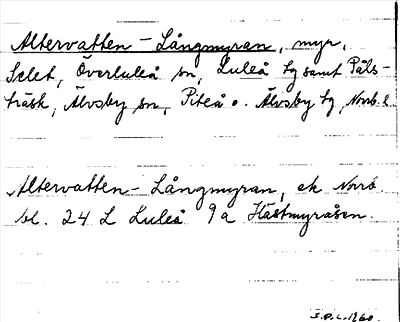 Altervatten - Långmyran, myr,
Selet, Överluleå sn, Luleå tg samt Päls-
träsk, Älvsby sn, Piteå o. Älvsby tg, Norrb. l.
Altervatten - Långmyran, ek Norrb.
bl. 24 L Luleå 9a Hästmyråsen.
1960.